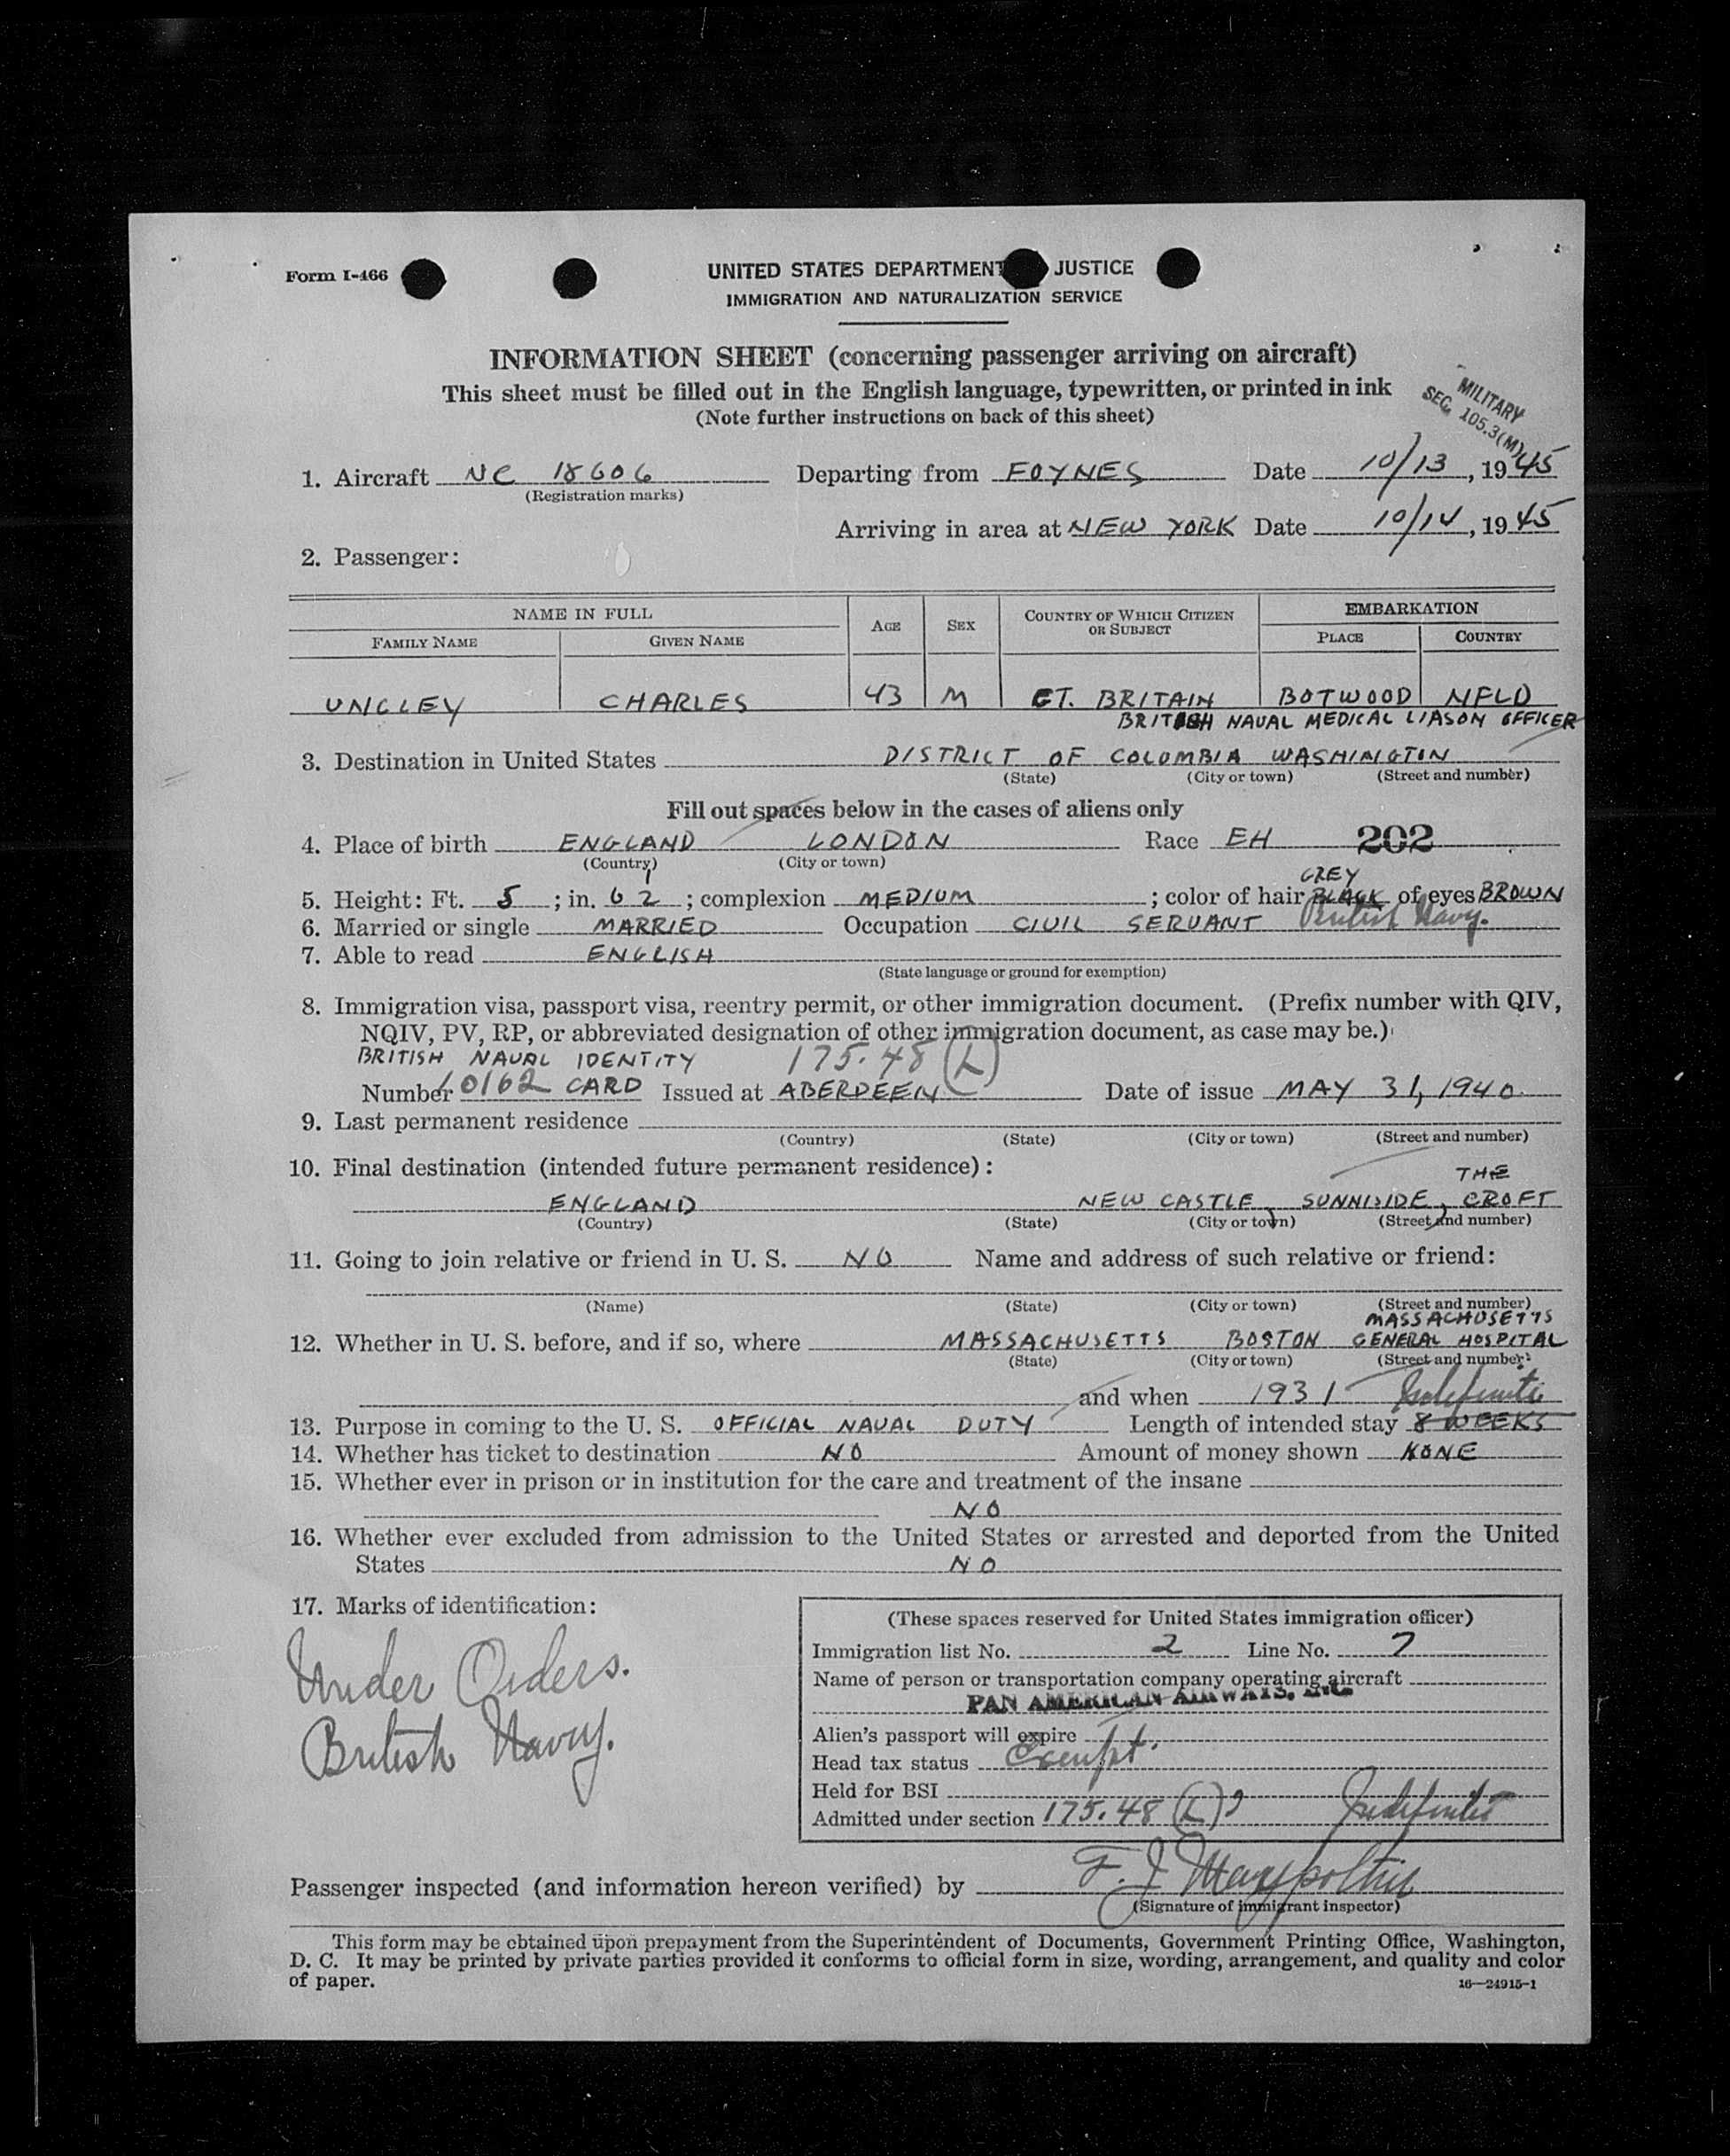 Form I-466
UNITED STATES DEPARTMENT JUSTICE
IMMIGRATION AND NATURALIZATION SERVICE
INFORMATION SHEET (concerning passenger arriving on aircraft)
This sheet must be filled out in the English language, typewritten, or printed in ink
(Note further instructions on back of this sheet)
MILITARY
SEC. 105.3(M)
1. Aircraft NC 18606 Departing from FOYNES Date 10/13, 1945
(Registration marks)
Arriving in area at NEW YORK Date 10/14, 1945
2. Passenger:
NAME IN FULL AGE SEX COUNTRY OF WHICH CITIZEN OR SUBJECT EMBARKATION
FAMILY NAME GIVEN NAME PLACE COUNTRY
UNGLEY CHARLES 43 M GT. BRITAIN BOTWOOD NFLD
BRITISH NAVAL MEDICAL LIASON OFFICER
3. Destination in United States DISTRICT OF COLOMBIA WASHINGTON
(State) (City or town) (Street and number)
Fill out spaces below in the cases of aliens only
4. Place of birth ENGLAND LONDON Race EH 202
(Country) (City or town)
GREY
5. Height: Ft. 5; in. 6 1/2; complexion MEDIUM; color of hair BLACK of eyes BROWN
6. Married or single MARRIED Occupation CIVIL SERVANT British Navy.
7. Able to read ENGLISH
(State language or ground for exemption)
8. Immigration visa, passport visa, reentry permit, or other immigration document. (Prefix number with QIV,
NQIV, PV, RP, or abbreviated designation of other immigration document, as case may be.)
BRITISH NAVAL IDENTITY 175.48 (L)
Number 10162 CARD Issued at ABERDEEN Date of issue MAY 31, 1940
9. Last permanent residence
(Country) (State) (City or town) (Street and number)
10. Final destination (intended future permanent residence):
THE
ENGLAND NEW CASTLE, SUNNISIDE, CROFT
(Country) (State) (City or town) (Street and number)
11. Going to join relative or friend in U. S. NO Name and address of such relative or friend:
(Name) (State) (City or town) (Street and number)
MASSACHUSETTS
12. Whether in U. S. before, and if so, where MASSACHUSETTS BOSTON GENERAL HOSPITAL
(State) (City or town) (Street and number)
and when 1931 Indefinite
13. Purpose in coming to the U. S. OFFICIAL NAVAL DUTY Length of intended stay 8 WEEKS
14. Whether has ticket to destination NO Amount of money shown NONE
15. Whether ever in prison or in institution for the care and treatment of the insane
NO
16. Whether ever excluded from admission to the United States or arrested and deported from the United
States NO
17. Marks of identification:
Under Orders.
British Navy.
(These spaces reserved for United States immigration officer)
Immigration list No. 2 Line No. 7
Name of person or transportation company operating aircraft
PAN AMERICAN AIRWAYS, INC.
Alien's passport will expire
Head tax status Exempt.
Held for BSI
Admitted under section 175.48 (L) Indefinite
Passenger inspected (and information hereon verified) by F. J.
(Signature of immigrant inspector)
This form may be obtained upon prepayment from the Superintendent of Documents, Government Printing Office, Washington,
D. C. It may be printed by private parties provided it conforms to official form in size, wording, arrangement, and quality and color
of paper. 16—24915-1